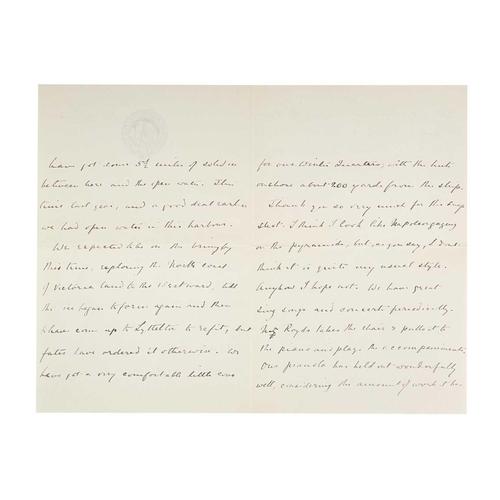 have got some 5½ miles of solid ice
between here and the open water. This
time last year, and a good deal earlier
we had open water in this harbour.
We expected to be on the briny by
this time, exploring the North coast
of Victoria Land to the Westward, till
the ice began to form again and then
have come up to Lyttelton to refit, but
fates have ordered it otherwise. We
have got a very comfortable little cove
for our Winter Quarters, with the huts
onshore about 200 yards from the ship.
Thank you so very much for the snap
shot. I think I look like Napoleon gazing
on the pyramids, but, as you say, I don't
think it is quite my usual style.
Anyhow I hope not. We have great
sing songs and concerts periodically.
Royds takes the chair &
the piano and plays the accompaniments.
Our pianola has held out wonderfully
well, considering the amount of work it has